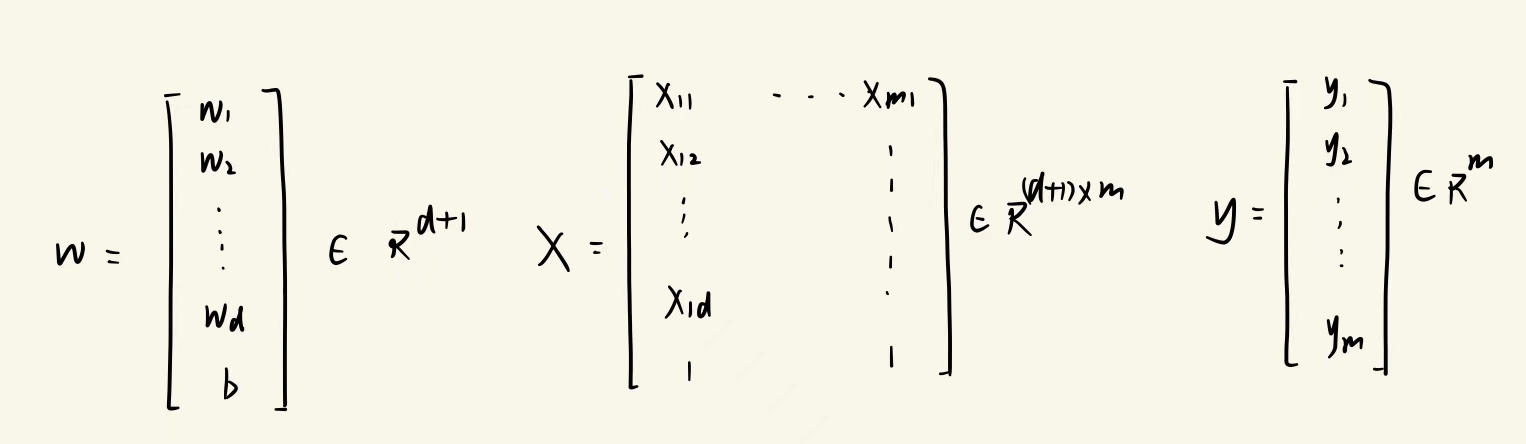 w = [ w₁ w₂ ⋮ w_d b ] ∈ ℝ^{d+1}
X = [ x₁₁ ··· x_{m1} x₁₂ ⋮ x_{1d} ⋮ 1 1 ] ∈ ℝ^{(d+1)×m}
y = [ y₁ y₂ ⋮ y_m ] ∈ ℝ^m